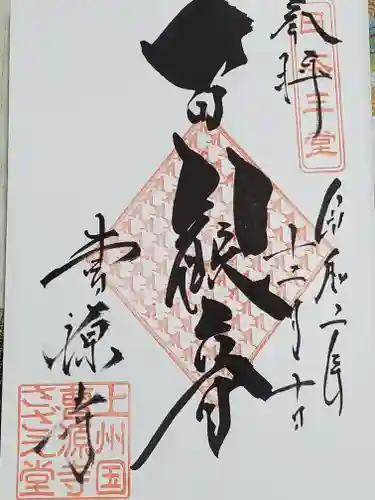 奉拝
令和二年
十二月十日
百観音
曹源寺
曹源寺
さざえ堂